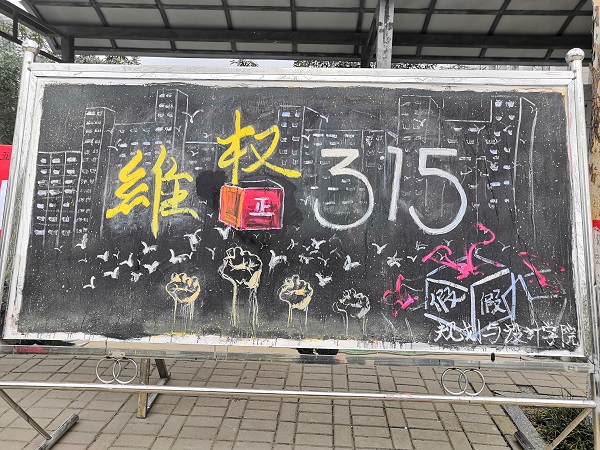 維权 315
正
假
规划与设计学院